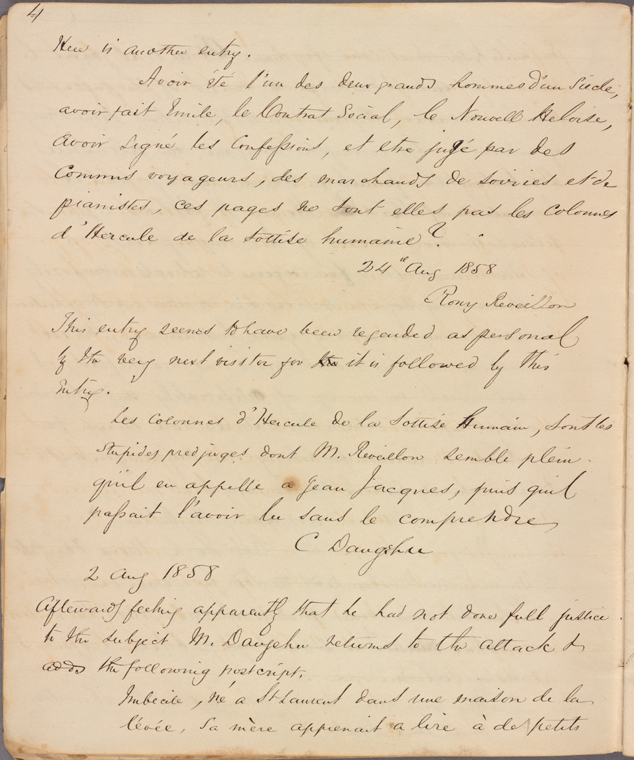 4
Here is another entry.
Avoir été l'un des deux grands hommes d'un Siecle,
avoir fait Emile, le Contrat Social, le Nouvell Heloise,
avoir signé les Confessions, et etre jugé par des
Commis voyageurs, des marchands de soiries et de
pianistes, ces pages ne sont elles pas les colonnes
d'Hercule de la sottise humaine?
24th Aug 1858
Romy Reveillon
This entry seems to have been regarded as personal
by the very next visitor for it is followed by this
Entry.
Les Colonnes d'Hercule de la Sottise Humain, sont les
Stupides predjuges dont M. Reveillon semble plein.
qu'il en appelle a Jean Jacques, puis quil
passait l'avoir lu sans le comprendre,
C Daugehu
2 Aug 1858
Afterwards feeling apparently that he had not done full justice
to the subject M. Daugehu returns to the attack &
adds the following postscript.
Imbecile, né a St Laurent dans une maison de la
levée, Sa mère apprenait a lire à de petits